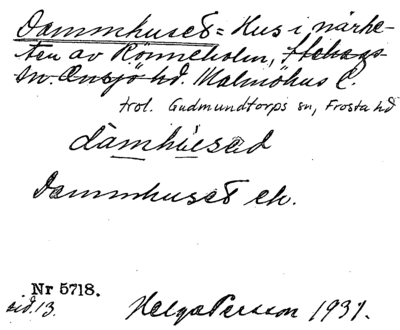 Dammhuset = Hus i närhe-
ten av Rönneholm, Stehags
sn. Onsjö hd. Malmöhus L.
trol. Gudmundtorps sn, Frosta hd
dàmhúsəd
Dammhuset ek.
Nr 5718.
sid. 13. Helga Persson 1931.